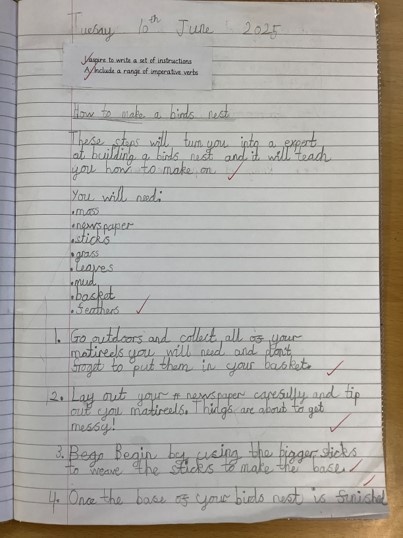 Tuesday 10th June 2025
I aspire to write a set of instructions
A include a range of imperative verbs
How to make a birds nest
These steps will turn you into a expert
at building a birds nest and it will teach
you how to make on
You will need:
•moss
•newspaper
•sticks
•grass
•leaves
•mud
•basket
•feathers
1. Go outdoors and collect all of your
matireels you will need and dont
forget to put them in your basket.
2. Lay out your newspaper carefully and tip
out you matireels. Things are about to get
messy!
3. Bego Begin by using the bigger sticks
to weave the sticks to make the base.
4. Once the base of your birds nest is finished